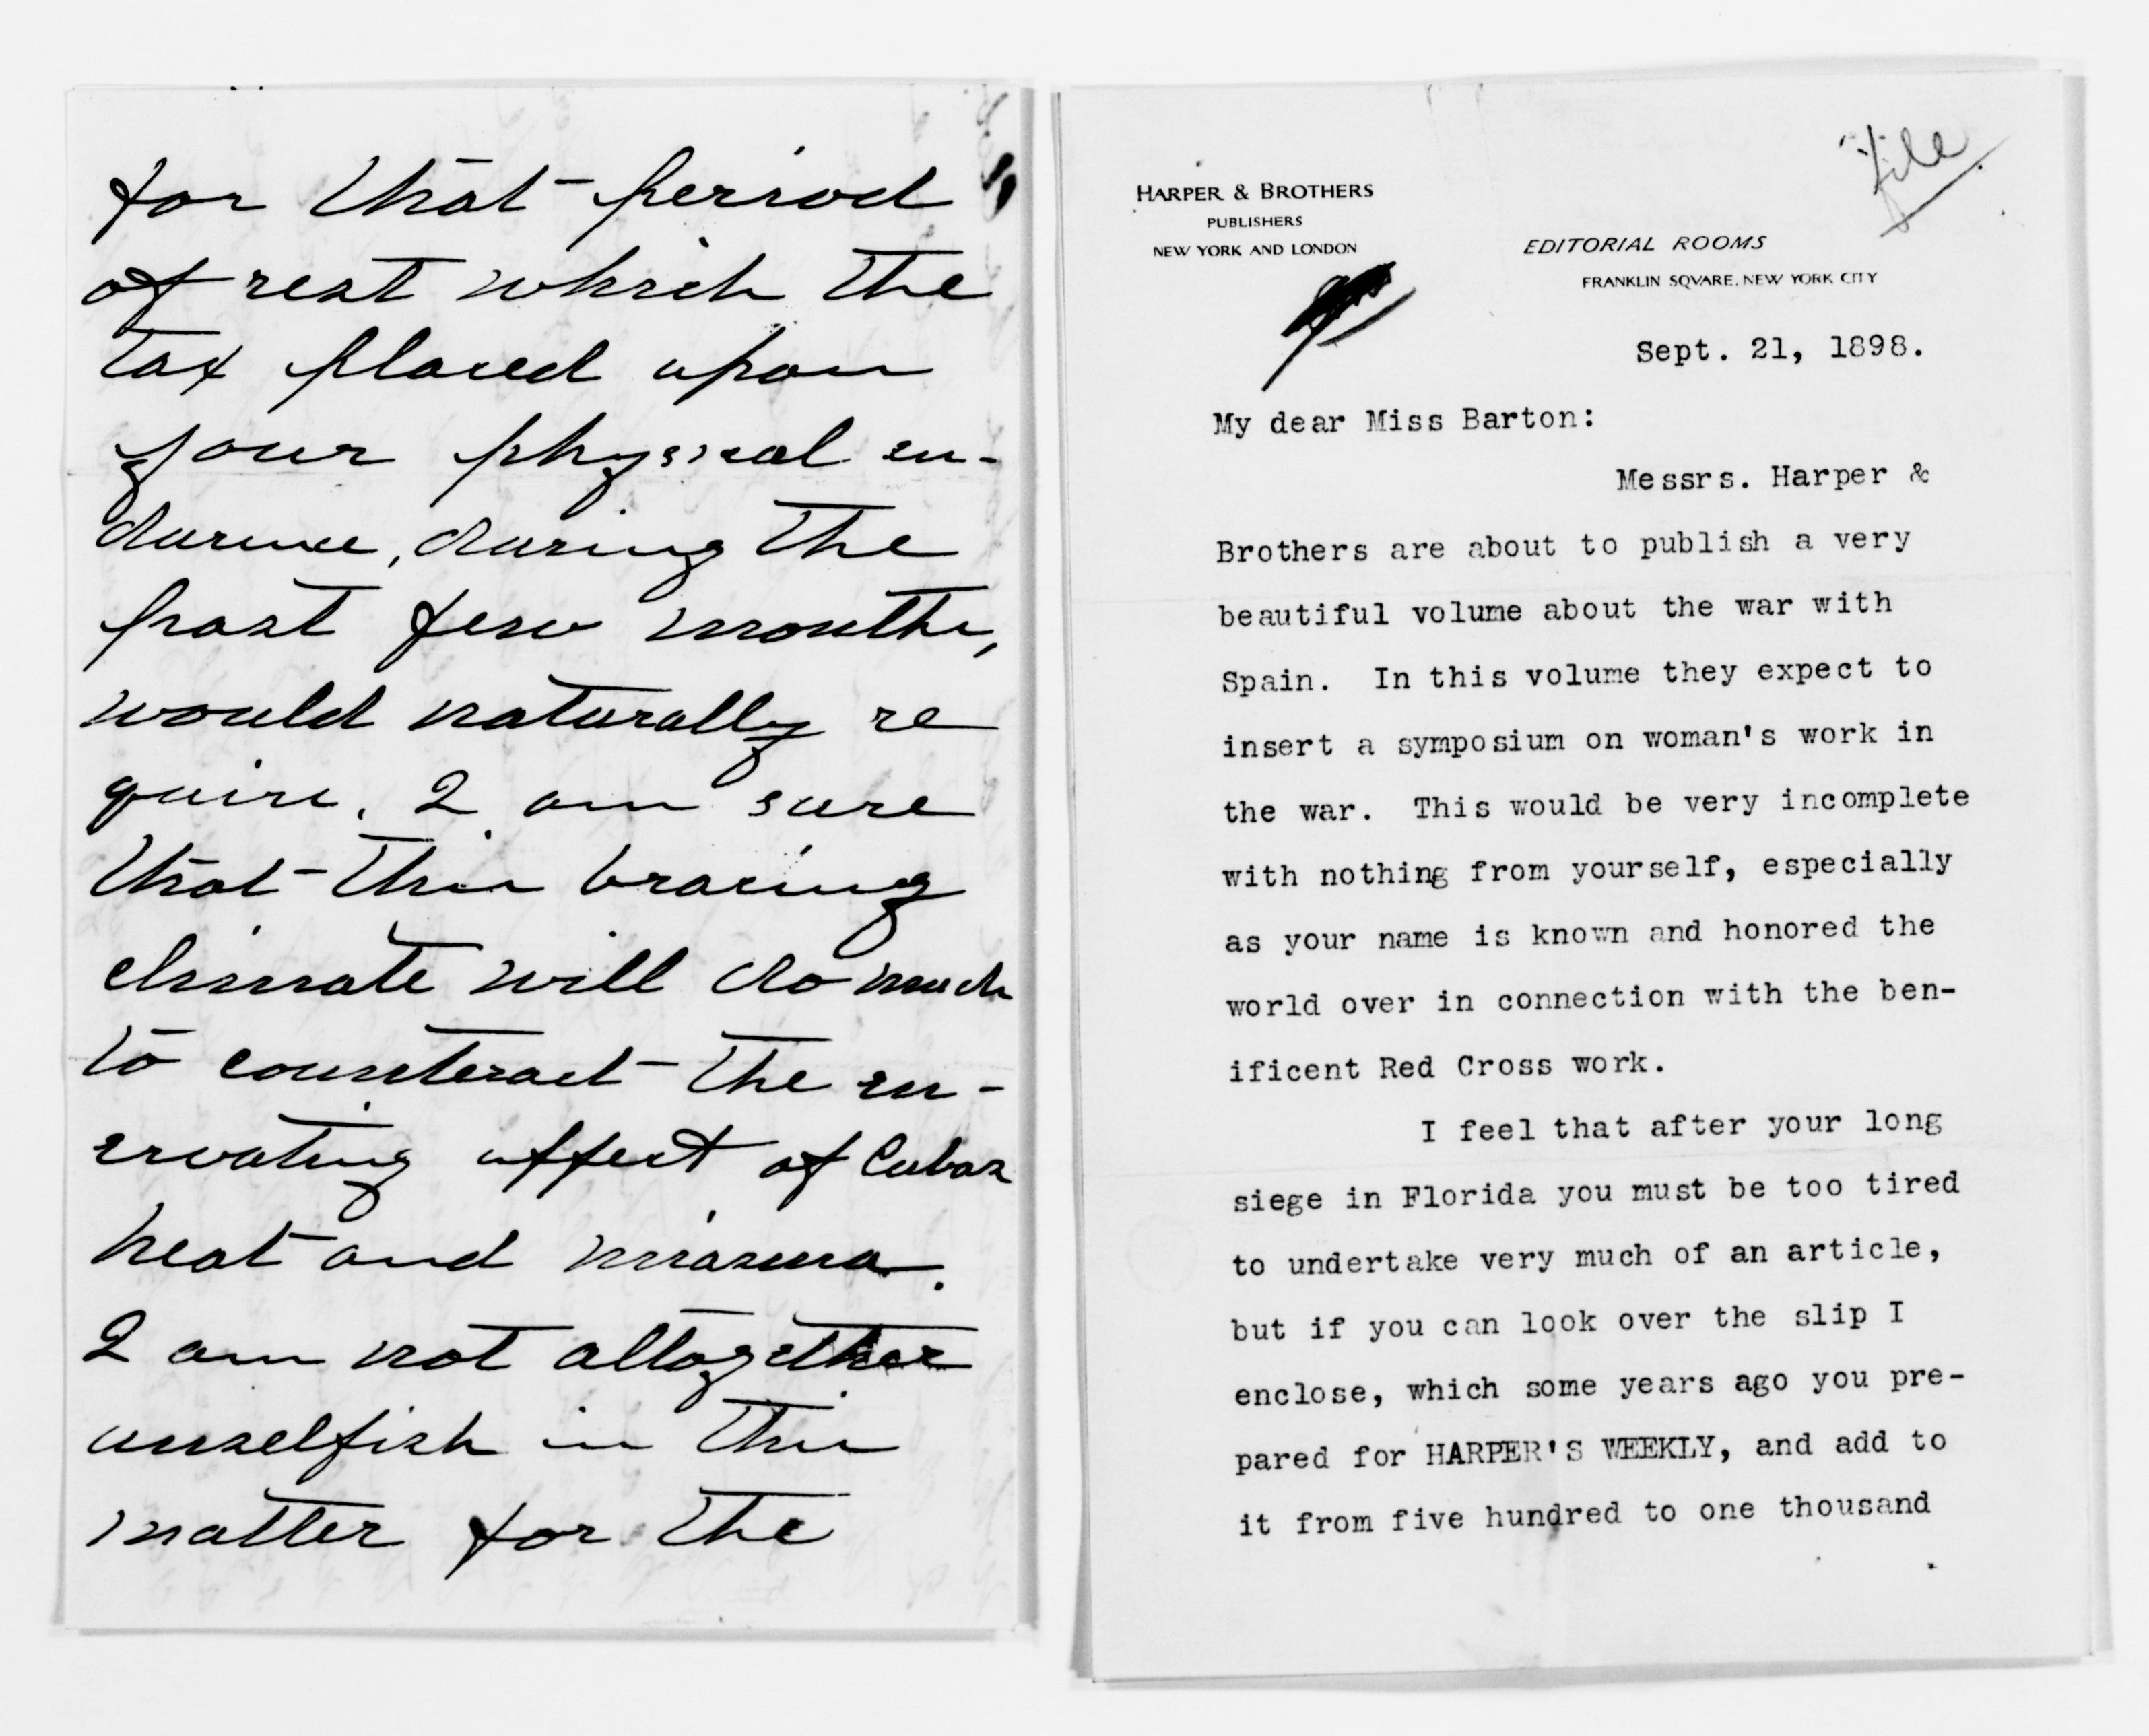 for that period
of rest which the
tax placed upon
your physical en-
durance, during the
past few months,
would naturally re
quire. I am sure
that this bracing
climate will do much
to counteract the en-
ervating affect of Cuban
heat and miasma.
I am not altogether
unselfish in this
matter for the
file
HARPER & BROTHERS
PUBLISHERS
NEW YORK AND LONDON
EDITORIAL ROOMS
FRANKLIN SQVARE. NEW YORK CITY
Sept. 21, 1898.
My dear Miss Barton:
Messrs. Harper &
Brothers are about to publish a very
beautiful volume about the war with
Spain. In this volume they expect to
insert a symposium on woman's work in
the war. This would be very incomplete
with nothing from yourself, especially
as your name is known and honored the
world over in connection with the ben-
ificent Red Cross work.
I feel that after your long
siege in Florida you must be too tired
to undertake very much of an article,
but if you can look over the slip I
enclose, which some years ago you pre-
pared for HARPER'S WEEKLY, and add to
it from five hundred to one thousand